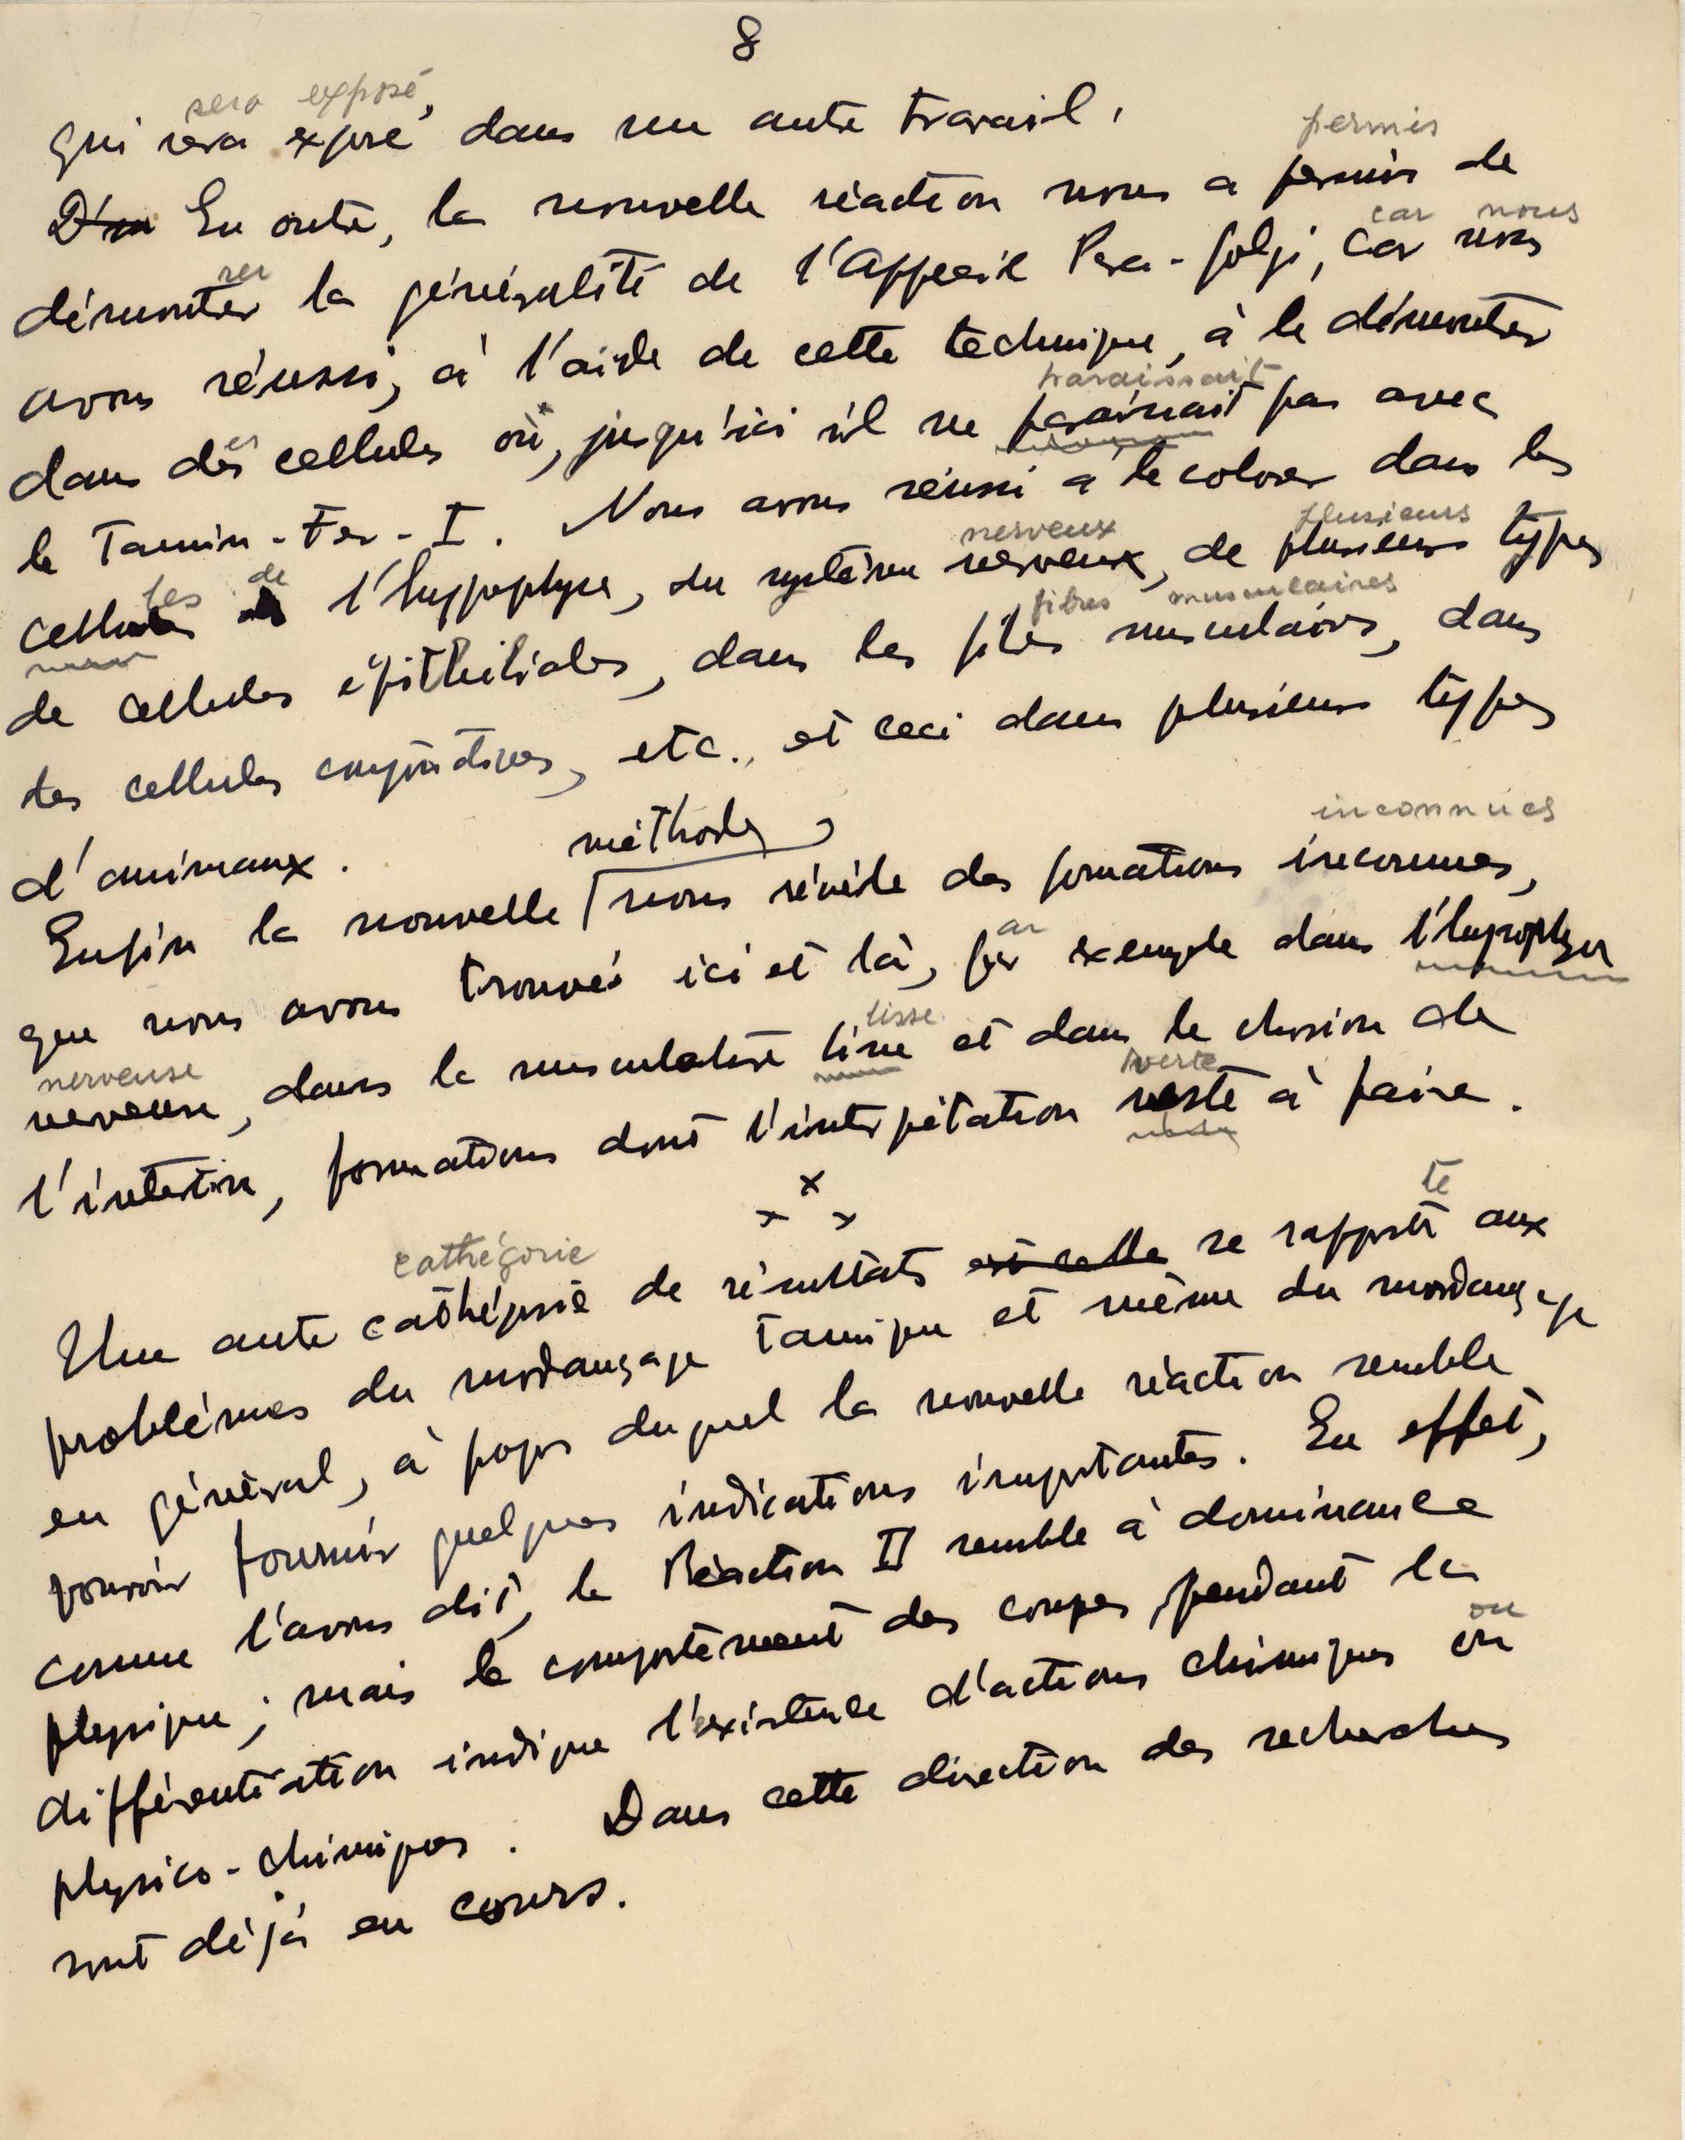 8
sera exposé
qui sera exposé dans un autre travail.
permis
D'un En outre, la nouvelle réaction nous a permis de
rer car nous
démontrer la généralité de l'Appareil Para-Golgi, car nous
avons réussi, à l'aide de cette technique, à le démontrer
paraissait
dans des cellules où, jusqu'ici il ne paraissait pas avec
le Tannin-Fer-I. Nous avons réussi à le colorer dans les
les de nerveux plusieurs
cellules de l'hypophyse, du système nerveux, de plusieurs types
fibres musculaires
de cellules épithéliales, dans les fibres musculaires, dans
des cellules conjonctives, etc., et ceci dans plusieurs types
d'animaux.
méthode inconnues
Enfin la nouvelle nous révèle des formations inconnues,
ar
que nous avons trouvées ici et là, par exemple dans l'hypophyse
nerveuse lisse
nerveuse, dans la musculature lisse et dans le chorion de
reste
l'intestin, formations dont l'interprétation reste à faire.
x
x x
cathégorie te
Une autre cathégorie de résultats est celle se rapporte aux
problèmes du mordançage tannique et même du mordançage
en général, à propos duquel la nouvelle réaction semble
pouvoir fournir quelques indications importantes. En effet,
comme l'avons dit, la Réaction II semble à dominance
physique; mais le comportement des coupes pendant la
ou
différentiation indique l'existence d'actions chimiques ou
physico-chimiques. Dans cette direction des recherches
sont déjà en cours.